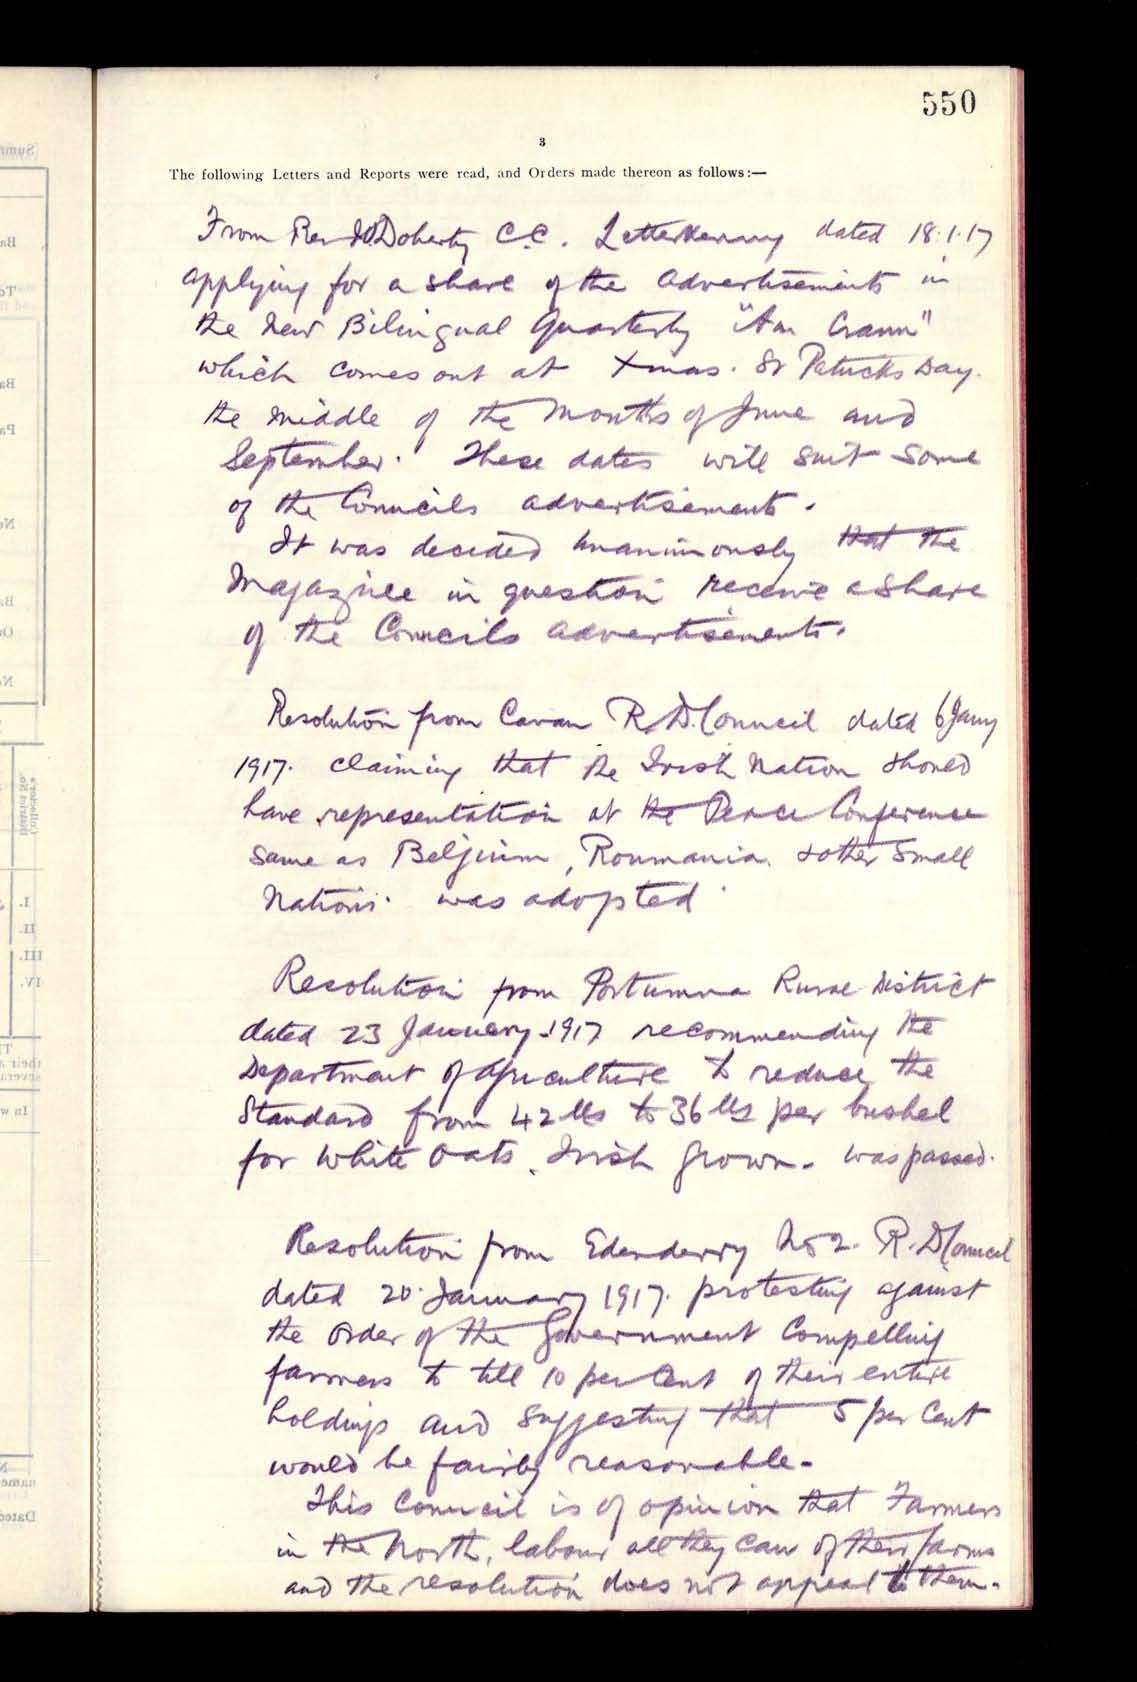 550
3
The following Letters and Reports were read, and Orders made thereon as follows:—
From Rev Doherty C.C. Letterkenny dated 18.1.17
applying for a share of the advertisements in
the new Bilingual Quarterly "An Crann"
which comes out at Xmas. St Patricks Day.
the middle of the months of June and
September. These dates will suit some
of the Councils advertisements.
It was decided unanimously that the
Magazine in question receive a share
of the Councils advertisements.
Resolution from Cavan R.D. Council dated 6 Jany
1917. claiming that the Irish Nation should
have representation at the Peace Conference
same as Belgium, Roumania. & other small
Nations. was adopted.
Resolution from Portumna Rural District
dated 23 January 1917 recommending the
Department of Agriculture to reduce the
Standard from 42 lbs to 36 lbs per bushel
for white oats, Irish grown. was passed.
Resolution from Edenderry No 2. R. D Council
dated 20 January 1917. protesting against
the order of the Government compelling
farmers to till 10 per cent of their entire
holdings and suggesting that 5 per cent
would be fairly reasonable.
This Council is of opinion that Farmers
in the North, labour all they can of their farms
and the resolution does not appeal to them.